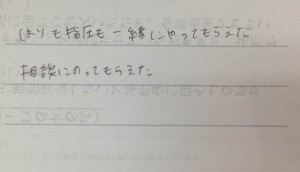 はりも指圧も一緒にやってもらえた
相談にのってもらえた